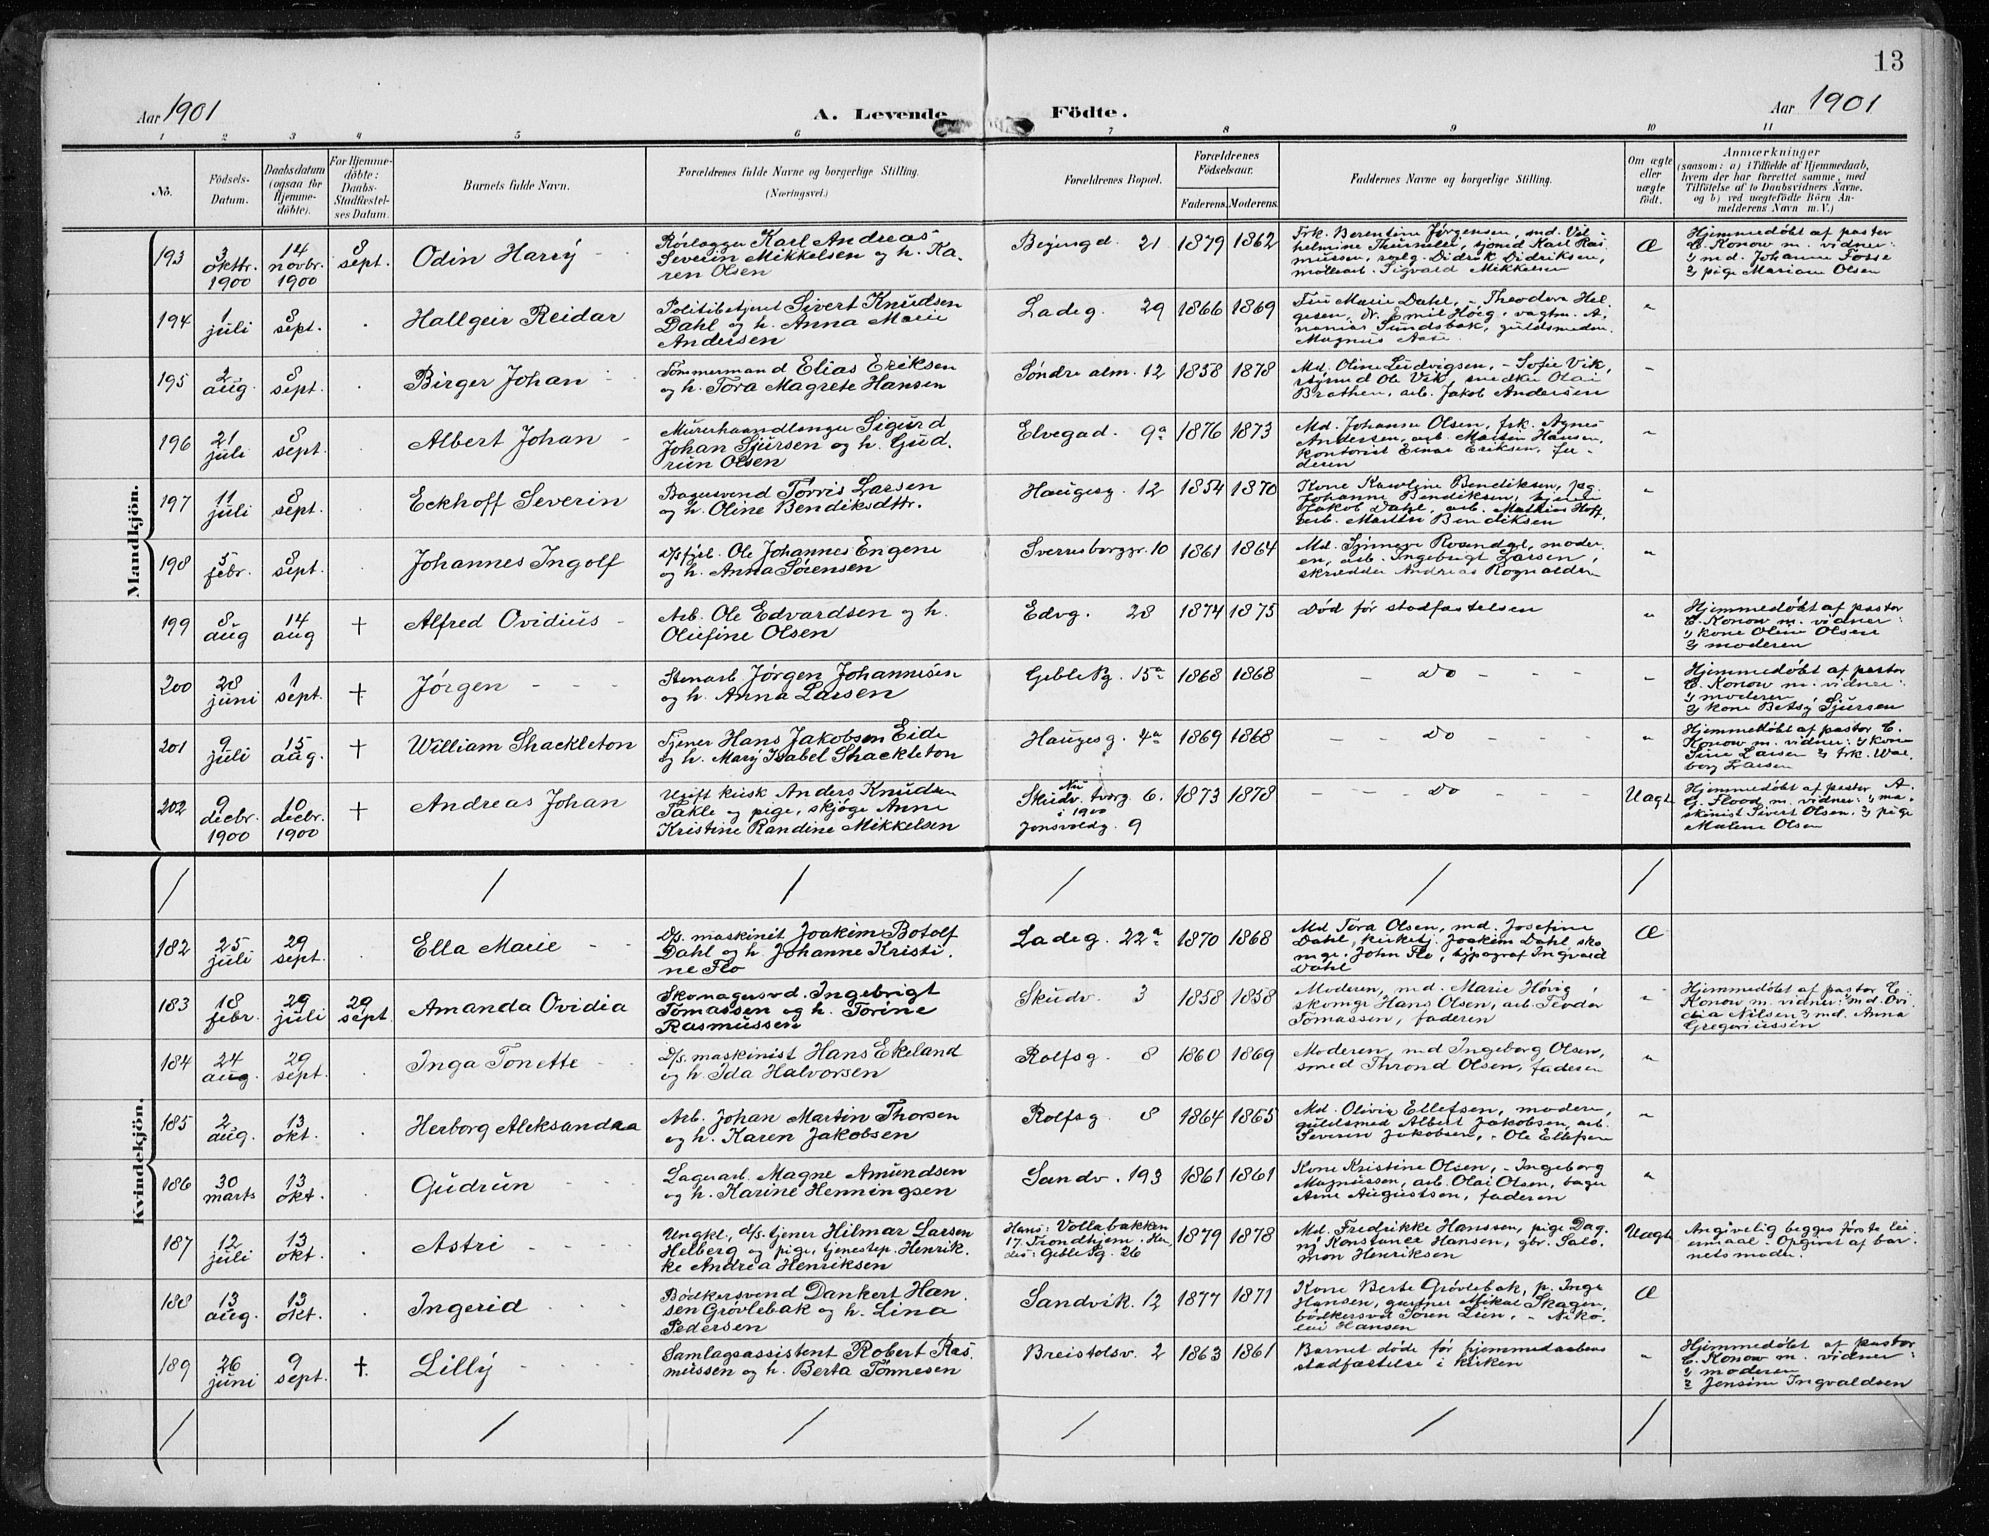 13
Aar 1901
A. Levende Födte.
Aar 1901
1 2 3 4 5 6 7 8 9 10 11
No.
Födsels-Datum.
Daabsdatum (ogsaa for Hjemme-döbte).
For Hjemme-döbte: Daabs-Stadfæstel-ses Datum.
Barnets fulde Navn.
Forældrenes fulde Navne og borgerlige Stilling. (Næringsvei.)
Forældrenes Bopæl.
Forældrenes Födselsaar.
Faderens. Moderens.
Faddernes Navne og borgerlige Stilling.
Om ægte eller uægte födt.
Anmærkninger
(saasom: a) i Tilfælde af Hjemmedaab,
hvem der har forrettet samme, med
Tilföielse af to Daabsvidners Navne,
og b) ved uægtefödte Börn An-
melderens Navn m. V.)
Mandkjön.
193
3 oktbr. 1900
14 novbr. 1900
8 sept.
Odin Harry
Rørlægger Karl Andreas
Severin Mikkelsen og h. Ka-
ren Olsen
21
1879 1862
Frk. Berentine Jørgensen, md. Vil-
helmine Thumler, sjømd Karl Ras-
mussen, Didrik Didriksen,
møllearb. Sigvald Mikkelsen
Æ
Hjemmedøbt af pastor
C. Konow m. vidner:
1) md. Johanne Fosse
2) pige Mariane Olsen
194
1 juli
8 sept.
Hallgeir Reidar
Politibetjent Sivert Knudsen
Dahl og h. Anna Marie
Andersen
Ladeg. 29
1866 1869
Fru Marie Dahl, - Theodora Hel-
gesen, dr. Emil Høeg, vagtm. A-
nanias Sundsbak, guldsmedm.
Magnus Aase
"
195
2 aug.
8 sept.
Birger Johan
Tømmermand Elias Eriksen
og h. Tora Magrete Hansen
Søndre alm. 12
1858 1878
Md. Oline Ludvigsen, - Sofie Vik,
styrmd Ole Vik, snedker Olai
Brathen, arb. Jakob Andersen
"
196
21 juli
8 sept.
Albert Johan
Murerhaandlanger Sigurd
Johan Sjursen og h. Gud-
run Olsen
Elvegad. 9a
1876 1873
Md. Johanne Olsen, frk. Agnes
Andersen, arb. Martin Hansen,
kontorist Einar Eriksen, fa-
deren
"
197
11 juli
8 sept.
Eckhoff Severin
Bagersvend Tørris Larsen
og h. Oline Bendiksdttr.
Haugesg. 12
1854 1870
Kone Karoline Bendiksen,
Johanne Bendiksen, tjener
Jakob Dahl, arb. Mathias Hoff,
arb. Martin Bendiksen
"
198
5 febr.
8 sept.
Johannes Ingolf
D/sfyrb. Ole Johannes Engene
og h. Anna Sørensen
Sverresborggr. 10
1861 1864
Md. Synneve Rosendal, moder-
en, arb. Ingebrigt Larsen,
skrædder Andreas Rognaldsen
"
199
8 aug
14 aug
†
Alfred Ovidius
Arb. Ole Edvardsen og h.
Olufine Olsen
Edvg. 28
1874 1875
Død før stadfæstelsen
"
Hjemmedøbt af pastor
C. Konow m. vidner:
1) kone Oline Olsen
2) moderen
200
28 juni
1 sept.
†
Jørgen
Stenarb Jørgen Johannesen
og h. Anna Larsen
Geble Pg. 15a
1868 1868
Do
"
Hjemmedøbt af pastor
C. Konow m. vidner:
1) moderen
2) kone Betsy Sjursen
201
9 juli
15 aug.
†
William Shackleton
Tjener Hans Jakobsen Eide
og h. Mary Isabel Shackleton
Haugesg. 4a
1869 1868
Do
"
Hjemmedøbt af pastor C.
Konow m. vidner: 1) kone
Sine Larsen 2) frk. Wal-
borg Larsen
202
9 decbr. 1900
10 decbr. 1900
†
Andreas Johan
Ugift kusk Anders Knudsen
Takle og pige, skjøge Anne
Kristine Randine Mikkelsen
Nu
Skudv. tværg 6.
i 1900
Jonsvoldg. 9
1873 1878
Do
Uægt.
Hjemmedøbt af pastor A.
G. Flood m. vidner: 1) ma-
skinist Sivert Olsen, 2) pige
Malene Olsen
Kvindekjön.
182
25 juli
29 sept.
Ella Marie
D/s. maskinist Joakim Botolf
Dahl og h Johanne Kristi-
ne Flo
Ladeg. 22a
1870 1868
Md Tora Olsen, md. Josefine
Dahl, kirketj. Joakim Dahl, sko-
mgr. John Flo, typograf Ingvald
Dahl
Æ
183
18 febr.
29 juli
29 sept.
Amanda Ovidia
Skomagersvd. Ingebrigt
Tomassen og h. Torine
Rasmussen
Skudv. 3
1858 1858
Moderen, md. Marie Høvig,
skomgr Hans Olsen, arb. Teodor
Tomassen, faderen
"
Hjemmedøbt af pastor C.
Konow m. vidner: 1) md. Ovi-
dia Nilsen 2) md. Anna
Gregoriussen
184
24 aug.
29 sept.
Inga Tonette
D/s. maskinist Hans Ekeland
og h. Ida Halvorsen
Rolfsg. 8
1860 1869
Moderen, md Ingeborg Olsen,
smed Thrond Olsen, faderen
"
185
2 aug.
13 okt.
Herborg Aleksandra
Arb. Johan Martin Thorsen
og h. Karen Jakobsen
Rolfsg. 8
1864 1865
Md. Olivia Ellefsen, moderen,
guldsmed Albert Jakobsen, arb.
Severin Jakobsen, - Ole Ellefsen
"
186
30 marts
13 okt.
Gudrun
Lagerarb. Magne Amundsen
og h. Karine Henningsen
Sandv. 193
1861 1861
Kone Kristine Olsen, - Ingeborg
Magnussen, arb. Olai Olsen, bager
Arne Augustsen, faderen
"
187
12 juli
13 okt.
Astri
Ungkl, d/s. tjener Hilmar Larsen
Helberg og pige, tjenestep. Henrik-
ke Andrea Henriksen
Hans: Vollabakken
17 Trondhjem. Hen-
des: Geble Pg. 26
1879 1878
Md. Fredrikke Hanssen, pige Dag-
ny Konstance Hansen, gbr. Salo-
mon Henriksen
Uægt.
Angivelig begges første lei-
ermaal. Opgivet af bar-
nets moder.
188
13 aug.
13 okt.
Ingerid
Bødkersvend Dankert Han-
sen Grøvlebak og h. Lina
Pedersen
Sandvik. 12
1877 1871
Kone Berte Grøvlebak, p. Inge
Hansen, gartner Mikal Skagen,
bødkersvd Søren Lien, - Niko-
lai Hansen
Æ
189
26 juni
9 sept.
†
Lilly
Samlagsassistent Robert Ras-
mussen og h. Berta Tønnesen
Breistolsv. 2
1863 1861
Barnet døde før hjemmedaabens
stadfæstelse i kirken
"
Hjemmedøbt af pastor
C. Konow m. vidner:
1) moderen
2) Jensine Ingvaldsen